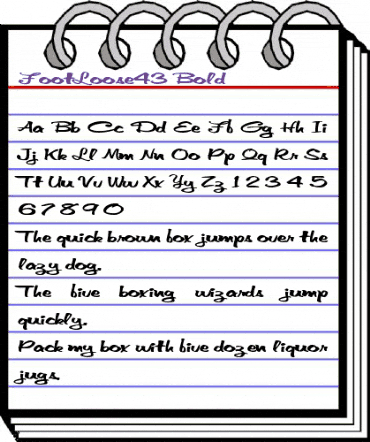 FootLoose43 Bold
Aa Bb Cc Dd Ee Ff Gg Hh Ii
Jj Kk Ll Mm Nn Oo Pp Qq Rr Ss
Tt Uu Vv Ww Xx Yy Zz 1 2 3 4 5
6 7 8 9 0
The quick brown fox jumps over the
lazy dog.
The five boxing wizards jump
quickly.
Pack my box with five dozen liquor
jugs.